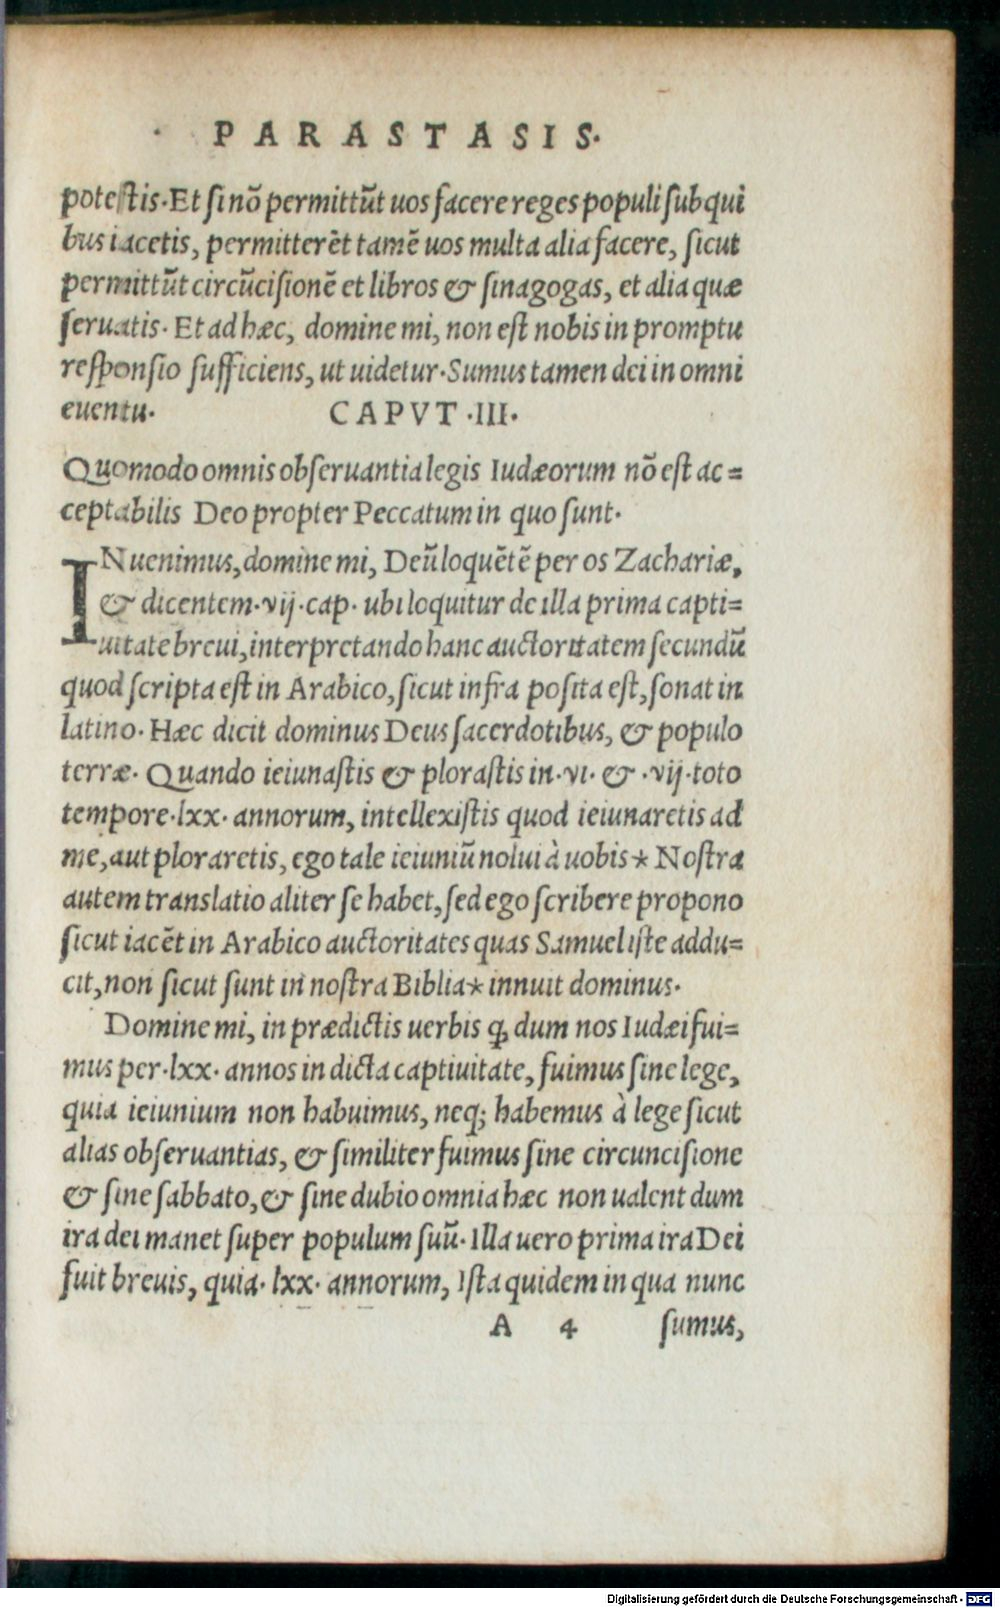 PARASTASIS.
potestis. Et si nõ permittũt uos facere reges populi sub qui
bus iacetis, permitterẽt tamẽ uos multa alia facere, sicut
permittũt circũcisionẽ et libros & sinagogas, et alia quæ
seruatis. Et ad hæc, domine mi, non est nobis in promptu
responsio sufficiens, ut uidetur. Sumus tamen dei in omni
euentu. CAPVT .III.
Quomodo omnis obseruantia legis Iudæorum nõ est ac=
ceptabilis Deo propter Peccatum in quo sunt.
INuenimus, domine mi, Deũ loquẽtẽ per os Zachariæ,
& dicentem .vij. cap. ubi loquitur de illa prima capti=
uitate breui, interpretando hanc auctoritatem secundũ
quod scripta est in Arabico, sicut infra posita est, sonat in
latino. Hæc dicit dominus Deus sacerdotibus, & populo
terræ. Quando ieiunastis & plorastis in .vi. & .vij. toto
tempore .lxx. annorum, intellexistis quod ieiunaretis ad
me, aut ploraretis, ego tale ieiuniũ nolui à uobis * Nostra
autem translatio aliter se habet, sed ego scribere propono
sicut iacẽt in Arabico auctoritates quas Samuel iste addu=
cit, non sicut sunt in nostra Biblia * innuit dominus.
Domine mi, in prædictis uerbis ꝙ dum nos Iudæi fui=
mus per .lxx. annos in dicta captiuitate, fuimus sine lege,
quia ieiunium non habuimus, neq; habemus à lege sicut
alias obseruantias, & similiter fuimus sine circuncisione
& sine sabbato, & sine dubio omnia hæc non ualent dum
ira dei manet super populum suũ. Illa uero prima ira Dei
fuit breuis, quia .lxx. annorum, Ista quidem in qua nunc
A 4 sumus,
Digitalisierung gefördert durch die Deutsche Forschungsgemeinschaft - DFG